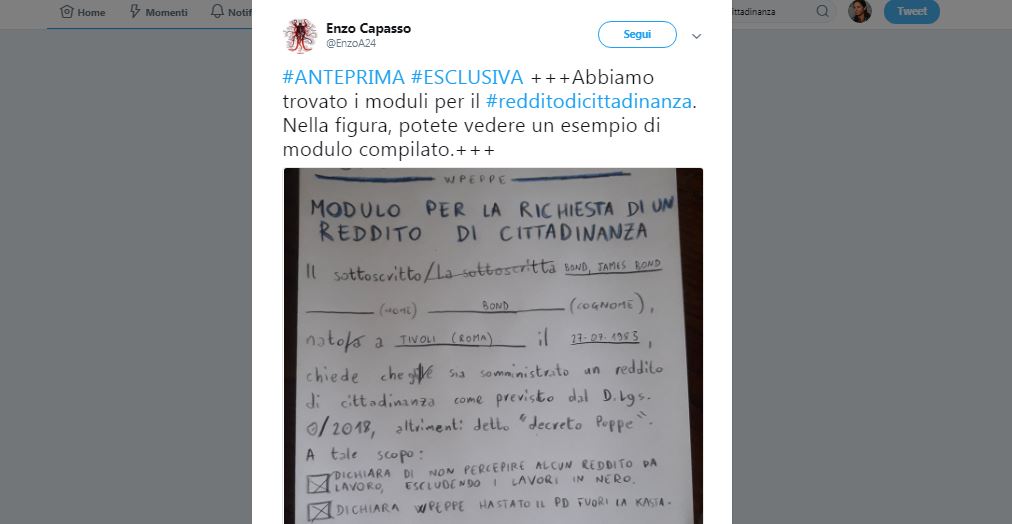 Home
Momenti
Notif
cittadinanza
Tweet
Enzo Capasso
@EnzoA24
Segui
#ANTEPRIMA #ESCLUSIVA +++Abbiamo
trovato i moduli per il #redditodicittadinanza.
Nella figura, potete vedere un esempio di
modulo compilato.+++
WPEPPE
MODULO PER LA RICHIESTA DI UN
REDDITO DI CITTADINANZA
Il sottoscritto/La sottoscritta BOND, JAMES BOND
(NOME) BOND (COGNOME),
nato/a a TIVOLI (ROMA) il 27-07-1983,
chiede che sia somministrato un reddito
di cittadinanza come previsto dal D.Lgs.
0/2018, altrimenti detto "decreto Peppe".
A tale scopo:
DICHIARA DI NON PERCEPIRE ALCUN REDDITO DA
LAVORO, ESCLUDENDO I LAVORI IN NERO.
DICHIARA WPEPPE HASTATO IL PD FUORI LA KASTA.